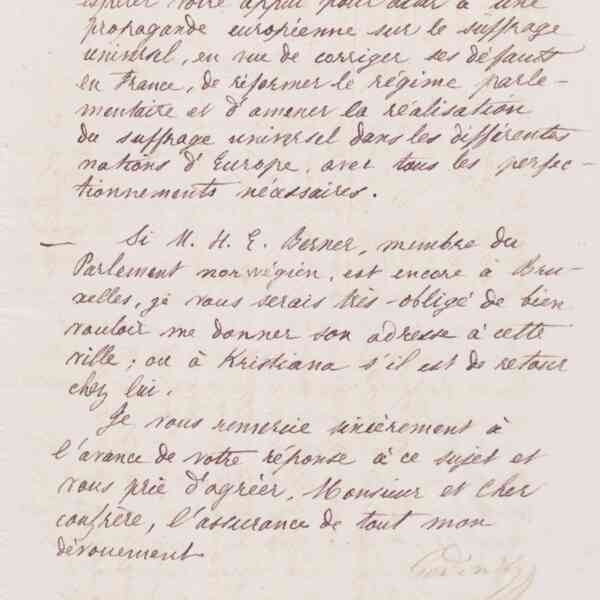 espérer votre appui pour aider à une
propagande européenne sur le suffrage
universel, en vue de corriger ses défauts
en France, de réformer le régime parle-
mentaire et d'amener la réalisation
du suffrage universel dans les différentes
nations d'Europe, avec tous les perfec-
tionnements nécessaires.
— Si M. H. E. Berner, membre du
Parlement norwégien, est encore à Bru-
xelles, je vous serais très-obligé de bien
vouloir me donner son adresse à cette
ville; ou à Kristiana s'il est de retour
chez lui.
Je vous remercie sincèrement à
l'avance de votre réponse à ce sujet et
vous prie d'agréer, Monsieur et cher
confrère, l'assurance de tout mon
dévouement
Godin